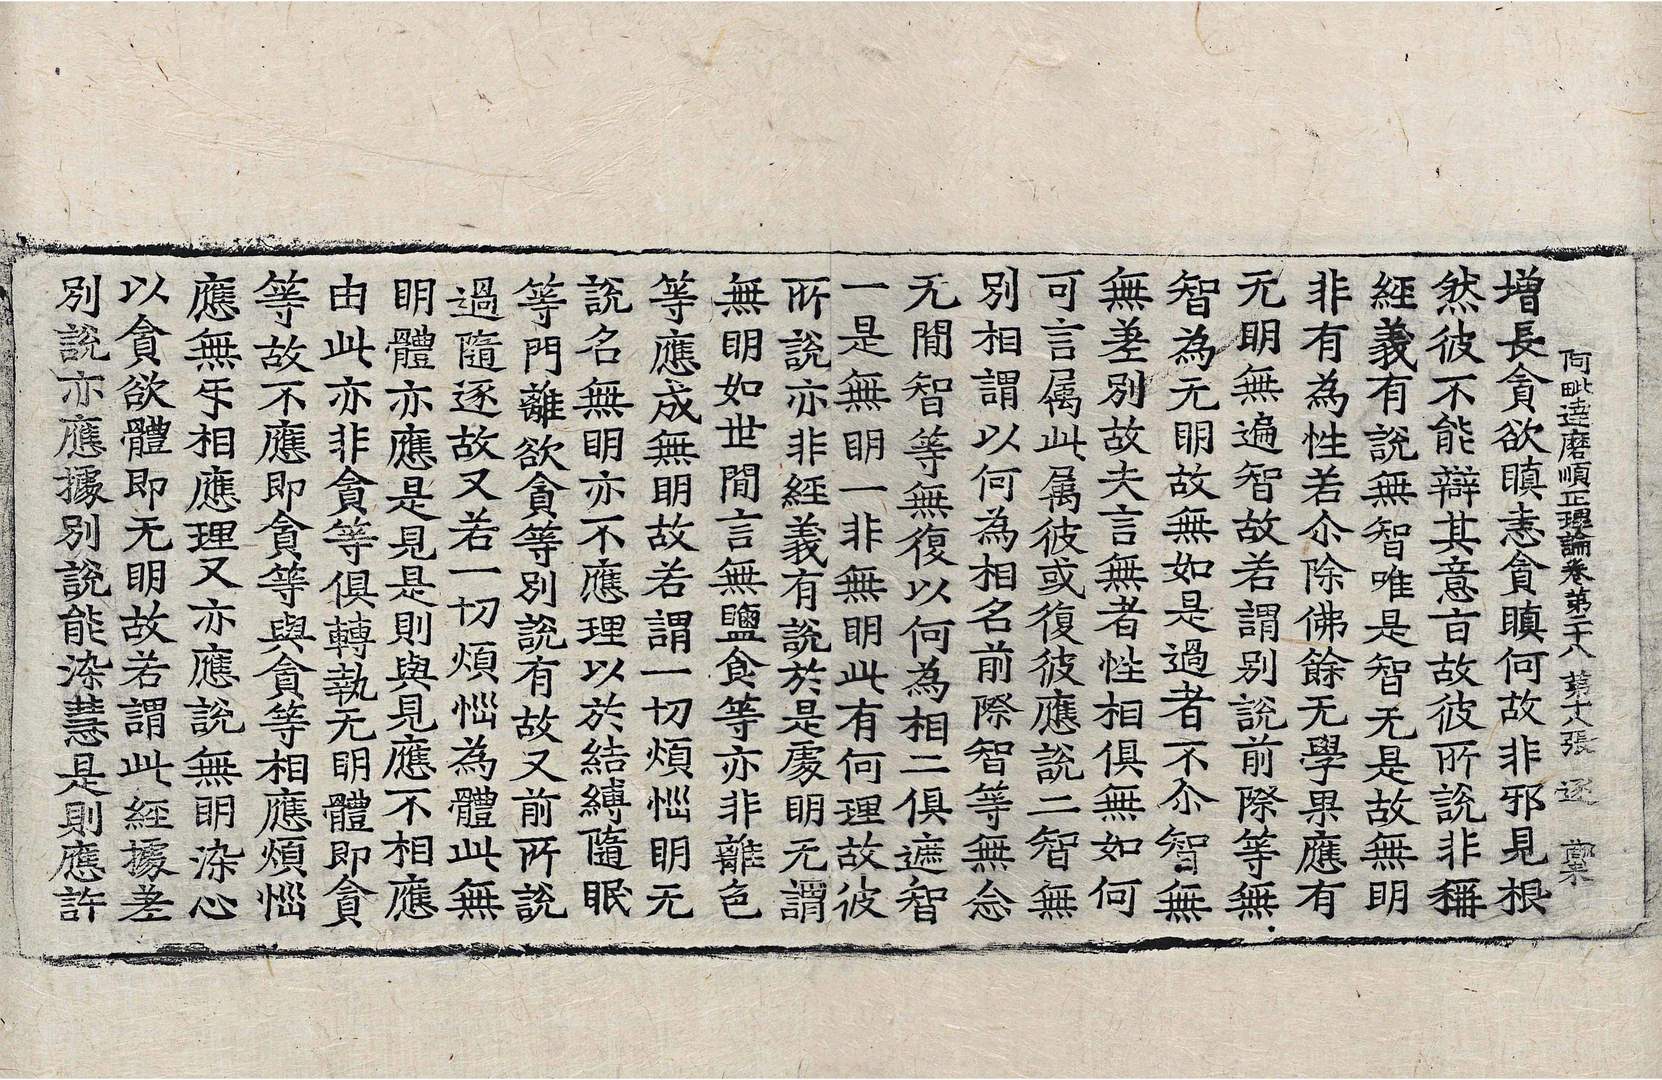 阿毗達磨順正理論卷第二十八 第十八張 逐
增長貪欲瞋恚貪瞋何故非邪見根
然彼不能辯其意旨故彼所說非稱
經義有說無智唯是智无是故無明
非有為性若尒除佛餘无學果應有
无明無遍智故若謂別說前際等無
智為无明故無如是過者不尒智無
無差別故夫言無者性相俱無如何
可言属此属彼或復彼應說二智無
別相謂以何為相名前際智等無念
无間智等無復以何為相二俱遮智
一是無明一非無明此有何理故彼
所說亦非經義有說於是處明无謂
無明如世間言無鹽食等亦非離色
等應成無明故若謂一切煩惱明无
說名無明亦不應理以於結縛隨眠
等門離欲貪等別說有故又前所說
過隨逐故又若一切煩惱為體此無
明體亦應是見是則與見應不相應
由此亦非貪等俱轉執无明體即貪
等故不應即貪等與貪等相應煩惱
應無㸦相應理又亦應說無明染心
以貪欲體即无明故若謂此經據差
別說亦應據別說能染慧是則應許